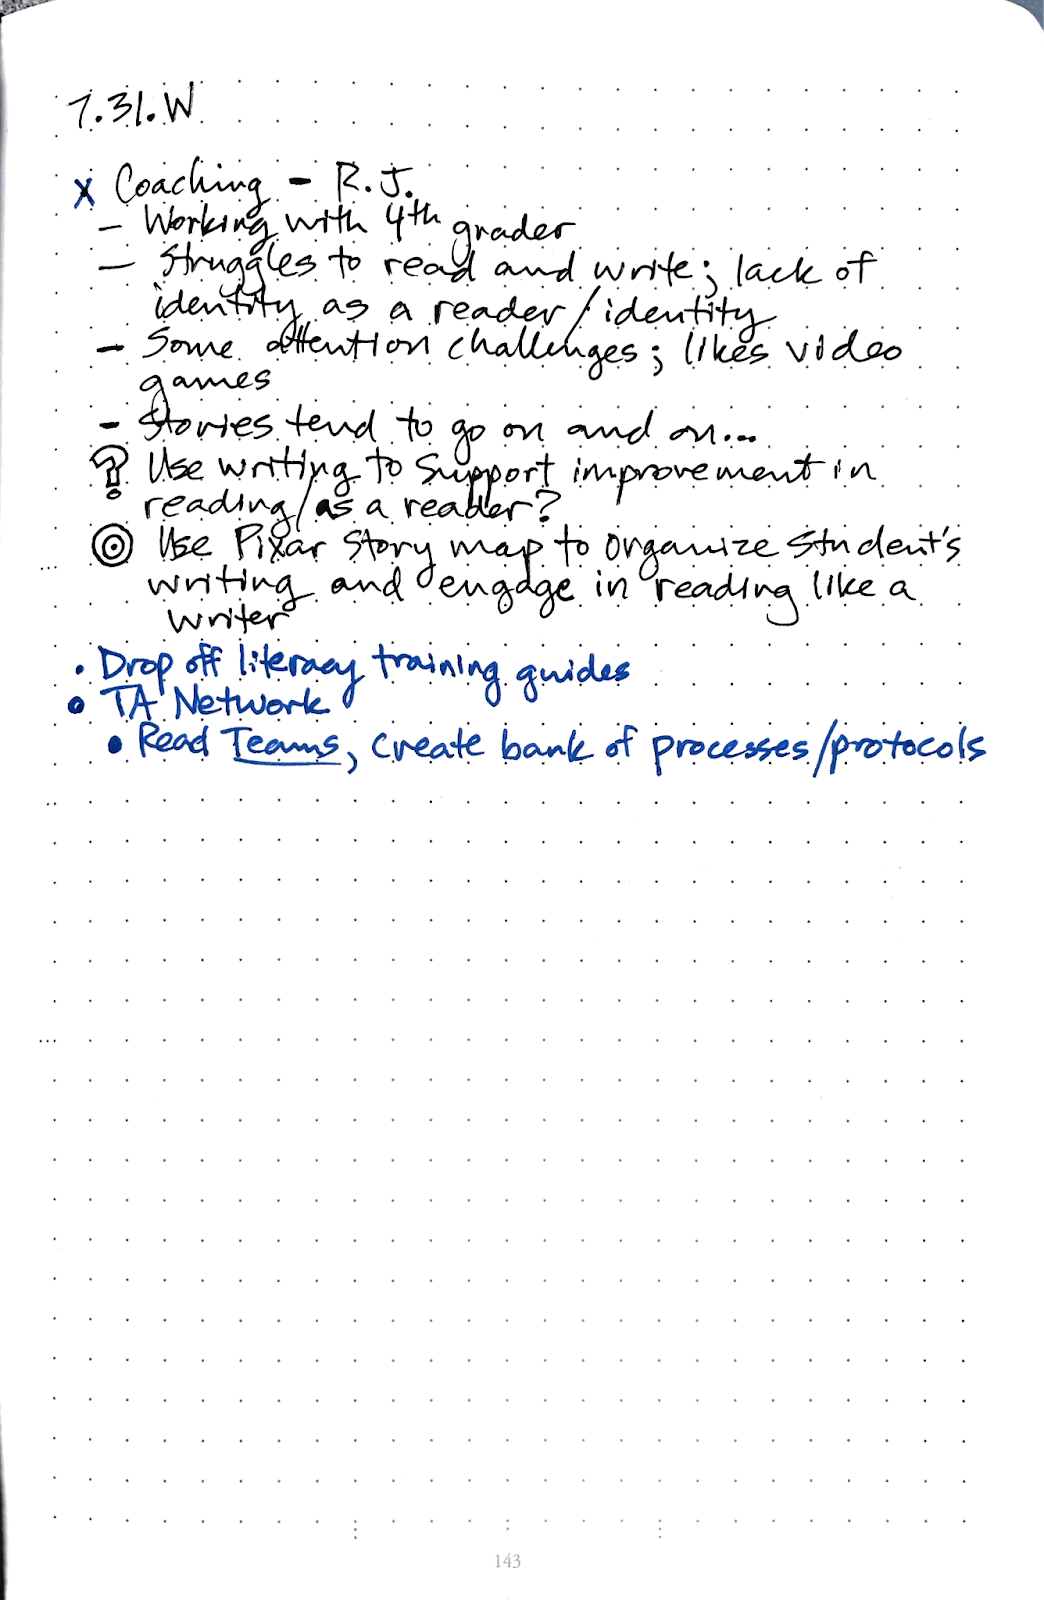 7.31.W
x Coaching - R.J.
- Working with 4th grader
- Struggles to read and write; lack of
identity as a reader/identity
- Some attention challenges; likes video
games
- Stories tend to go on and on...
? Use writing to support improvement in
reading/as a reader?
◎ Use Pixar Story map to organize student's
writing and engage in reading like a
writer
• Drop off literacy training guides
• TA Network
• Read Teams, create bank of processes/protocols
143